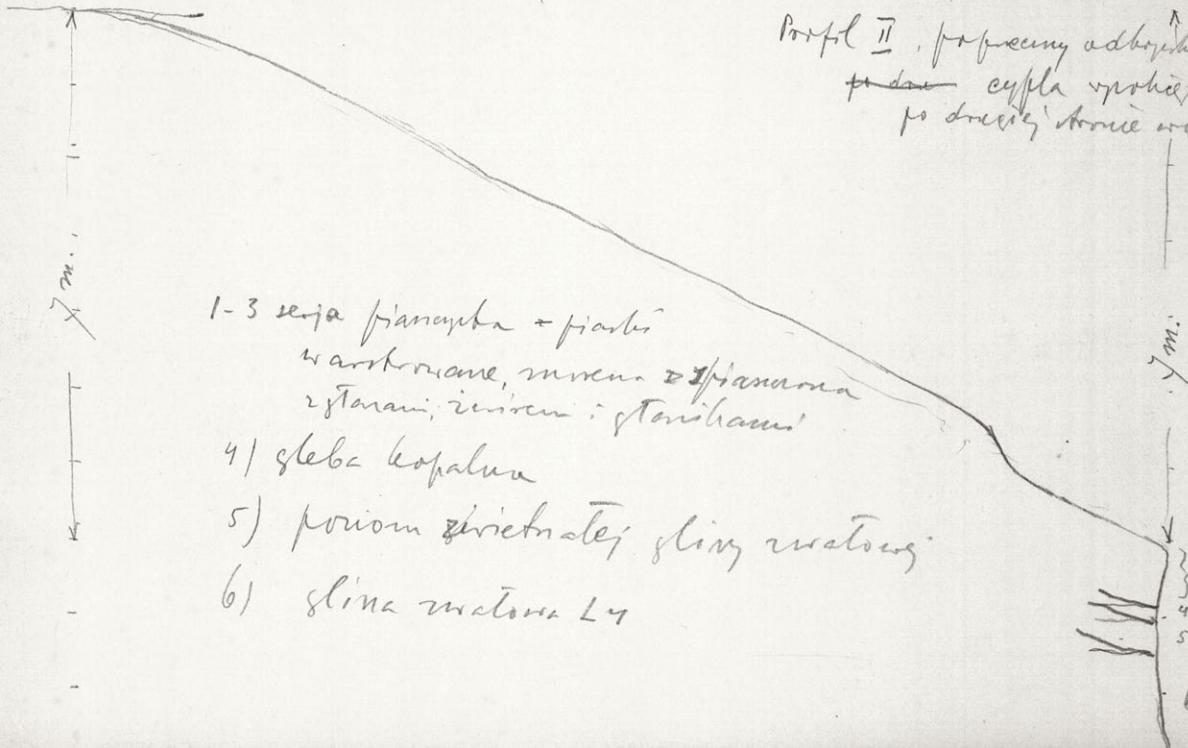 Porfil II. poprzeczny
cypla
po drugiej stronie
7 m.
7 m.
1-3 serja piaszczysta - piaski
warstwowane, morena piaszczona
z głazami, żwirem i głazikami
4) gleba kopalna
5) poziom zwietrzałej gliny zwałowej
6) glina zwałowa L4
4
5